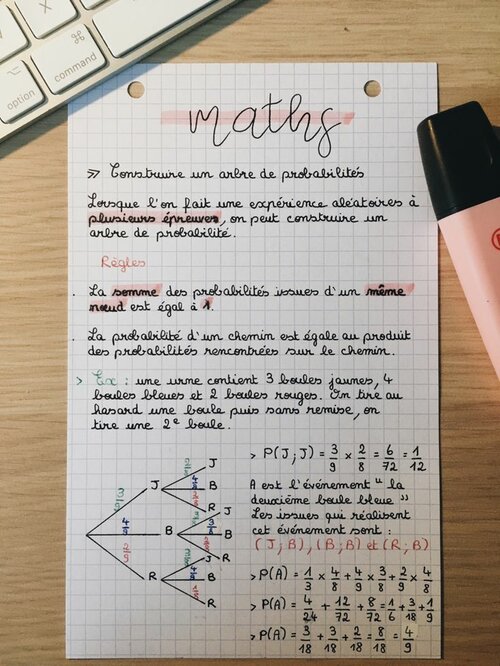 option
command
⌘
maths
» Construire un arbre de probabilités
Lorsque l'on fait une expérience aléatoires à
plusieurs épreuves, on peut construire un
arbre de probabilité.
Règles
. La somme des probabilités issues d'un même
nœud est égal à 1.
. La probabilité d'un chemin est égale au produit
des probabilités rencontrées sur le chemin.
> Ex : une urne contient 3 boules jaunes, 4
boules bleues et 2 boules rouges. On tire au
hasard une boule puis sans remise, on
tire une 2e boule.
J
J
B
R
J
B
B
R
J
R
B
R
3/9
4/9
2/9
> P(J;J) = 3/9 × 2/8 = 6/72 = 1/12
A est l'événement " la
deuxième boule bleue "
Les issues qui réalisent
cet événement sont :
(J;B), (B;B) et (R;B)
> P(A) = 1/3 × 4/8 + 4/9 × 3/8 + 2/9 × 4/8
> P(A) = 4/24 + 12/72 + 8/72 = 1/6 + 3/18 + 1/9
> P(A) = 3/18 + 3/18 + 2/18 = 8/18 = 4/9